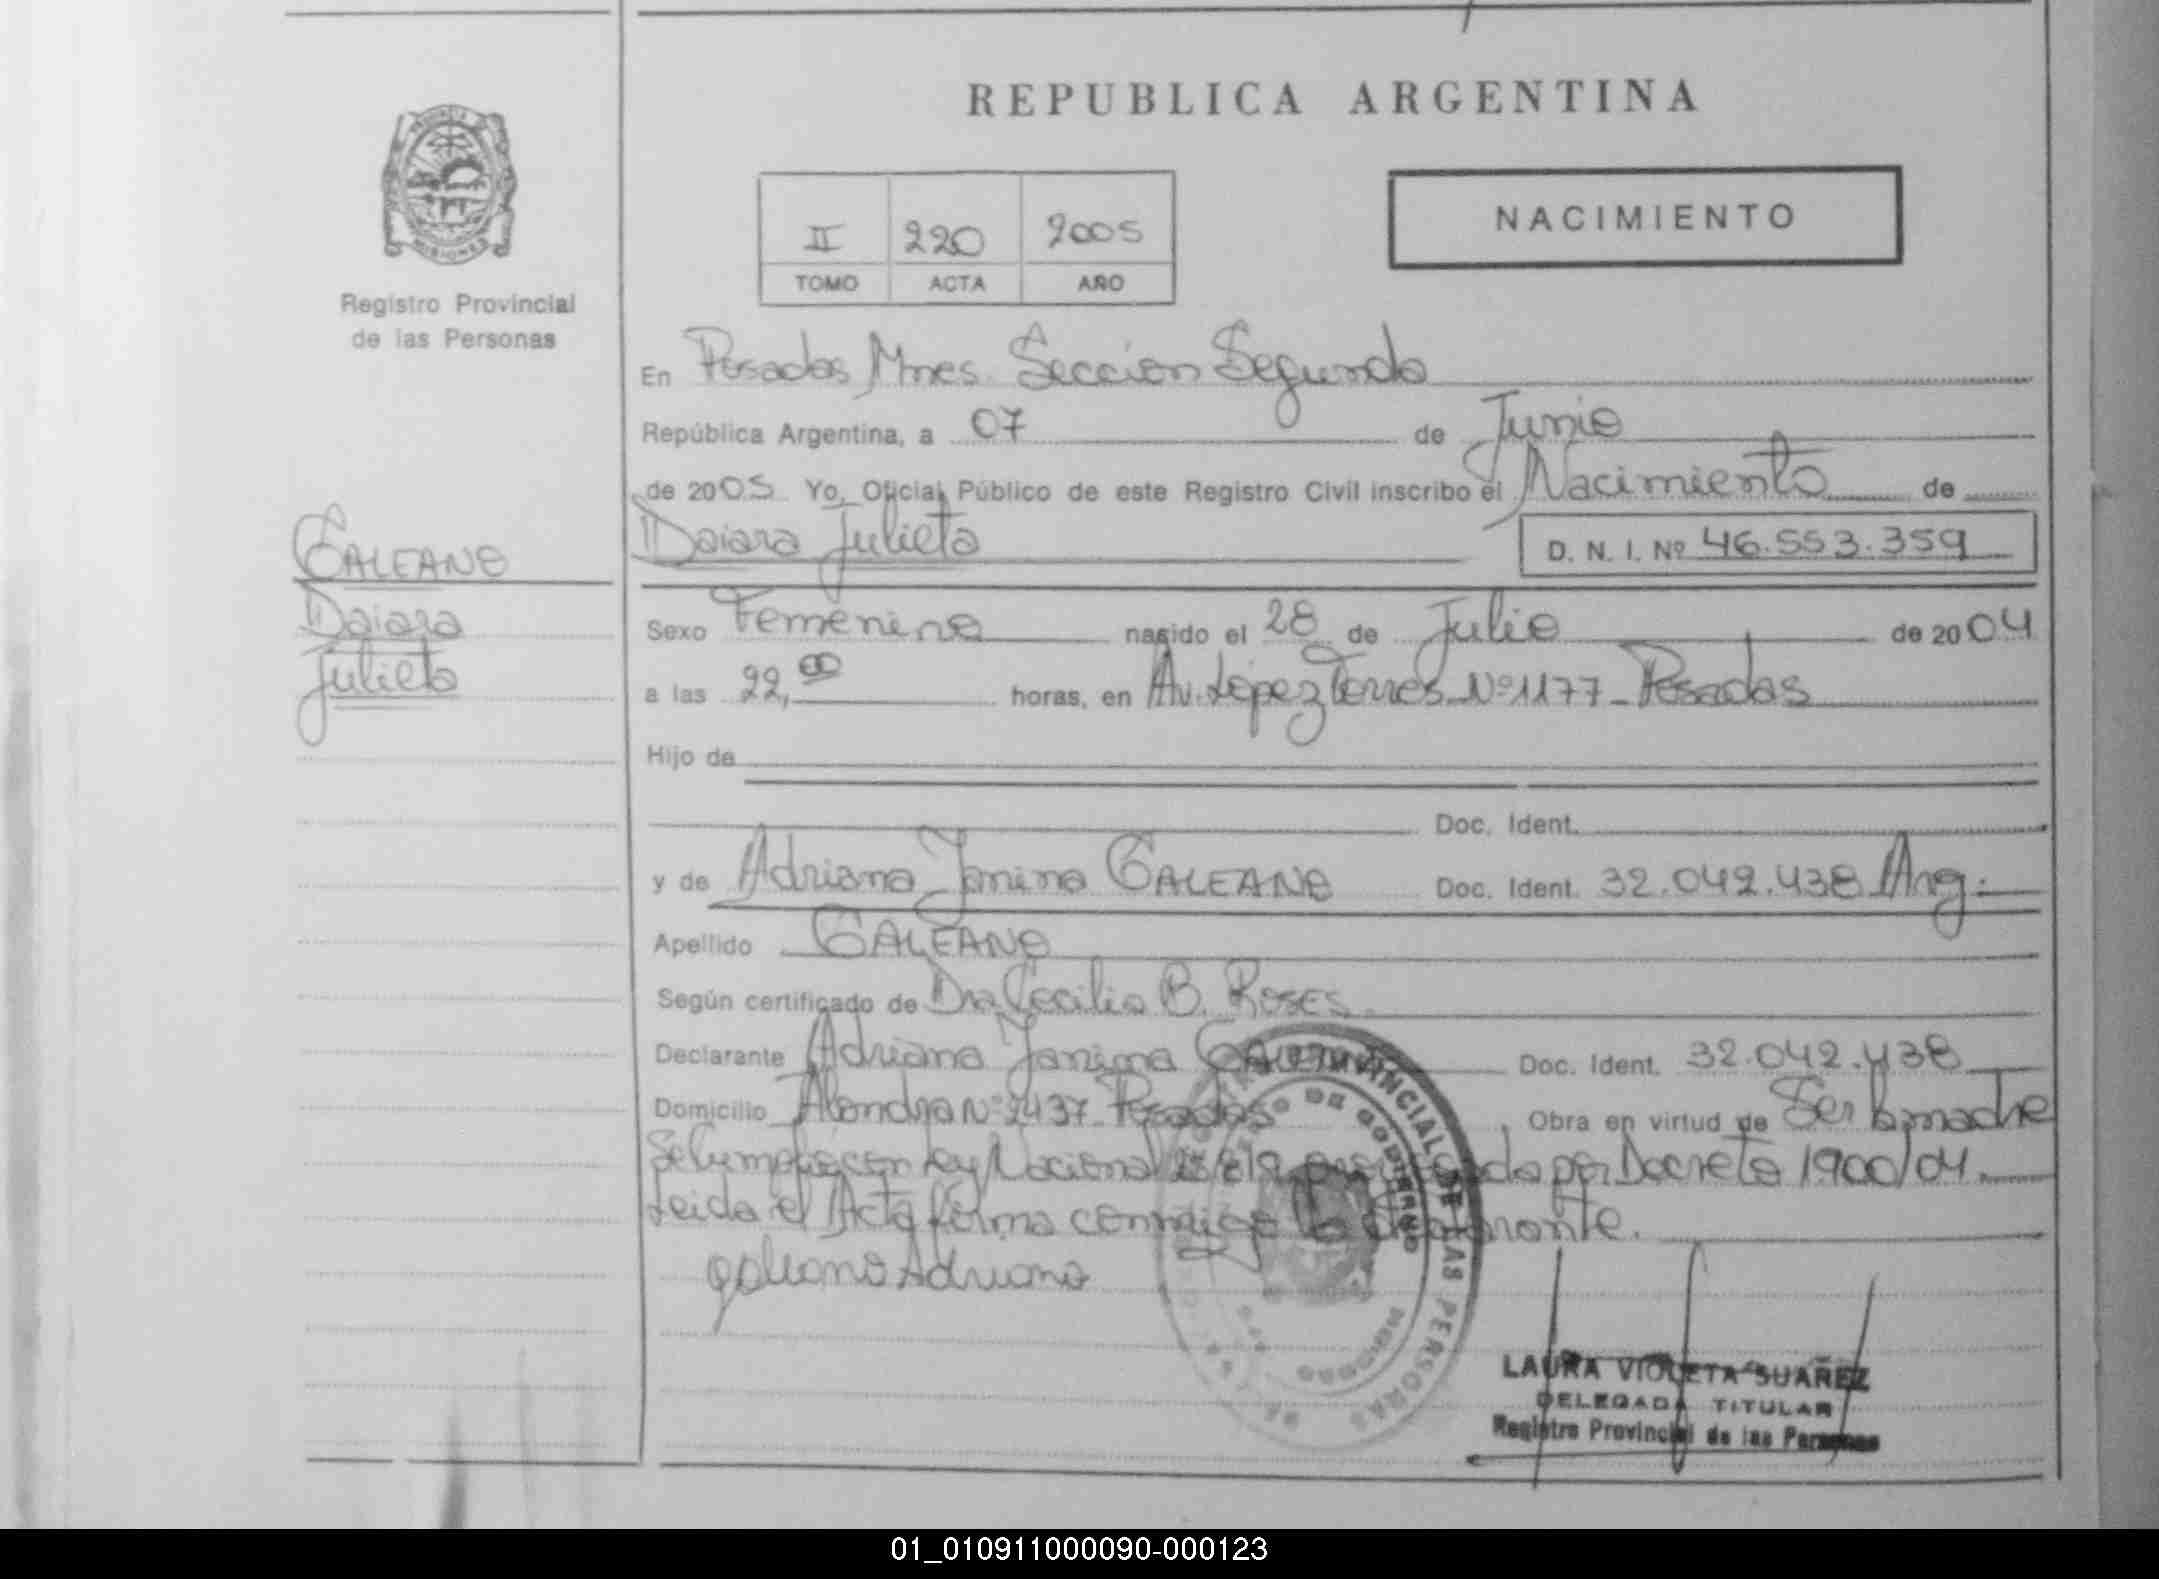 REPUBLICA ARGENTINA
PROVINCIA DE
MISIONES
Registro Provincial
de las Personas
II 220 2005
TOMO ACTA AÑO
NACIMIENTO
En Posadas Mnes. Sección Segunda
República Argentina, a 07 de Junio
de 2005 Yo, Oficial Público de este Registro Civil inscribo el Nacimiento de
Daiara Julieta
D. N. I. Nº 46.553.359
GALEANO
Daiara
Julieta
Sexo Femenino nacido el 28 de Julio de 2004
a las 22,00 horas, en Av. López Torres Nº 1177 - Posadas
Hijo de
Doc. Ident.
y de Adriana Janina GALEANO Doc. Ident. 32.042.438 Arg.
Apellido GALEANO
Según certificado de Dra Cecilia B. ROSES
Declarante Adriana Janina GALEANO Doc. Ident. 32.042.438
Domicilio Alondra Nº 2437 Posadas Obra en virtud de Ser la madre
Se cumplió con Ley Nacional por Decreto 1900/04.
Leida el Acta firma conmigo la declarante.
galeano Adriana
PROVINCIAL DE LAS PERSONAS
DE GOBIERNO
LAURA VIOLETA SUAREZ
DELEGADA TITULAR
Registro Provincial de las Personas
01_010911000090-000123